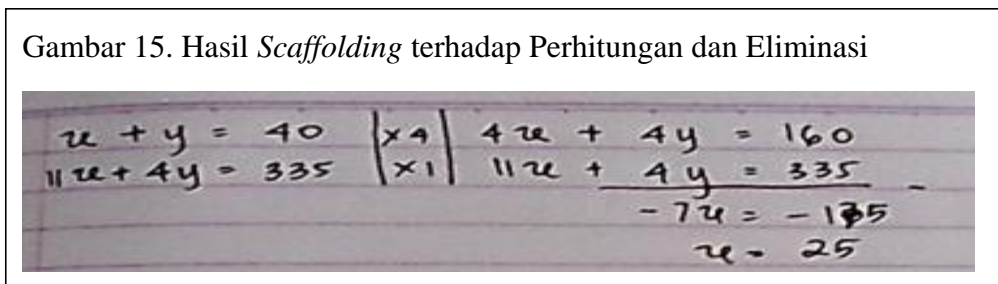 Gambar 15. Hasil Scaffolding terhadap Perhitungan dan Eliminasi
x + y = 40 | x 4 | 4x + 4y = 160
11x + 4y = 335 | x 1 | 11x + 4y = 335 -
-7x = -175
x = 25